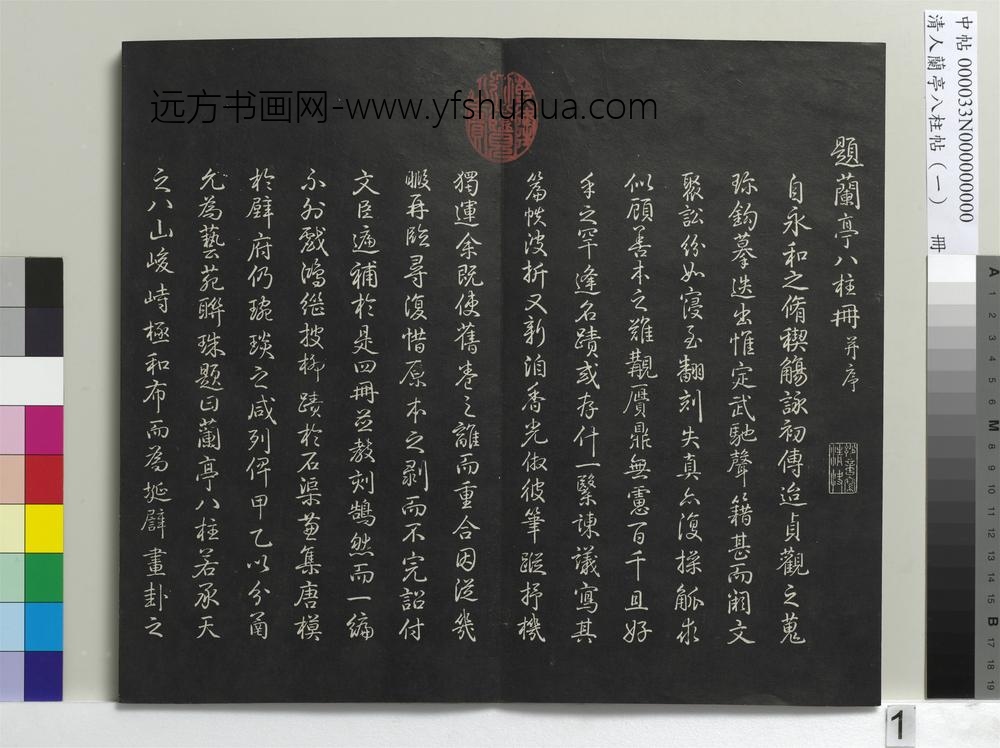 題蘭亭八柱冊并序
自永和之脩稧觴詠初傳迨貞觀之蒐
珎鉤摹迭出惟定武馳聲籍甚而闕文
聚訟紛如寖至翻刻失真亦復操觚求
似顧善本之難覯贋鼎無慮百千且好
手之罕逢名蹟或存什一繄諫議寫其
篇帙波折又新洎香光倣彼筆蹤抒機
獨運余既使舊卷之離而重合因從幾
暇再臨尋復惜原本之剥而不完詔付
文臣遍補於是四冊並教刻鵠然而一編
不分戲鴻繼披柳蹟於石渠兼集唐模
於壁府仍琬琰之咸列俾甲乙以分籤
允為藝苑聨珠題曰蘭亭八柱若承天
之八山峻峙極和布而為埏辟畫卦之
远方书画网-www.yfshuhua.com
中帖 000033N000000000
清人蘭亭八柱帖(一) 冊
A 1 2 3 4 5 6 M 8 9 10 11 12 13 14 15 B 17 18 19
1